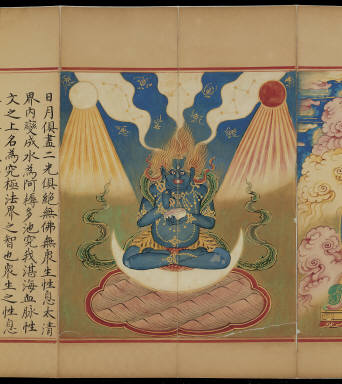 日月俱盡二光俱絕無佛無衆生性息太清
界內變成水為阿耨多池究我湛海血脉性
文之上名為究極法界之智也衆生之性息